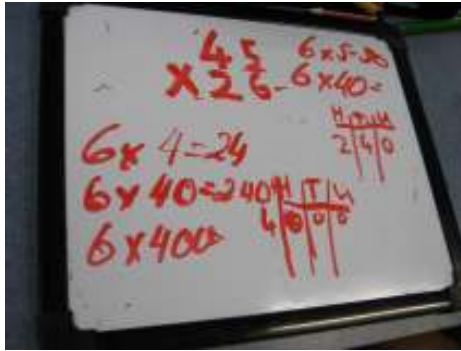 45
×26
6×5=30
6×40=
H T U
2 4 0
6× 4=24
6×40=240
6×400
H T U
4 0 0 0